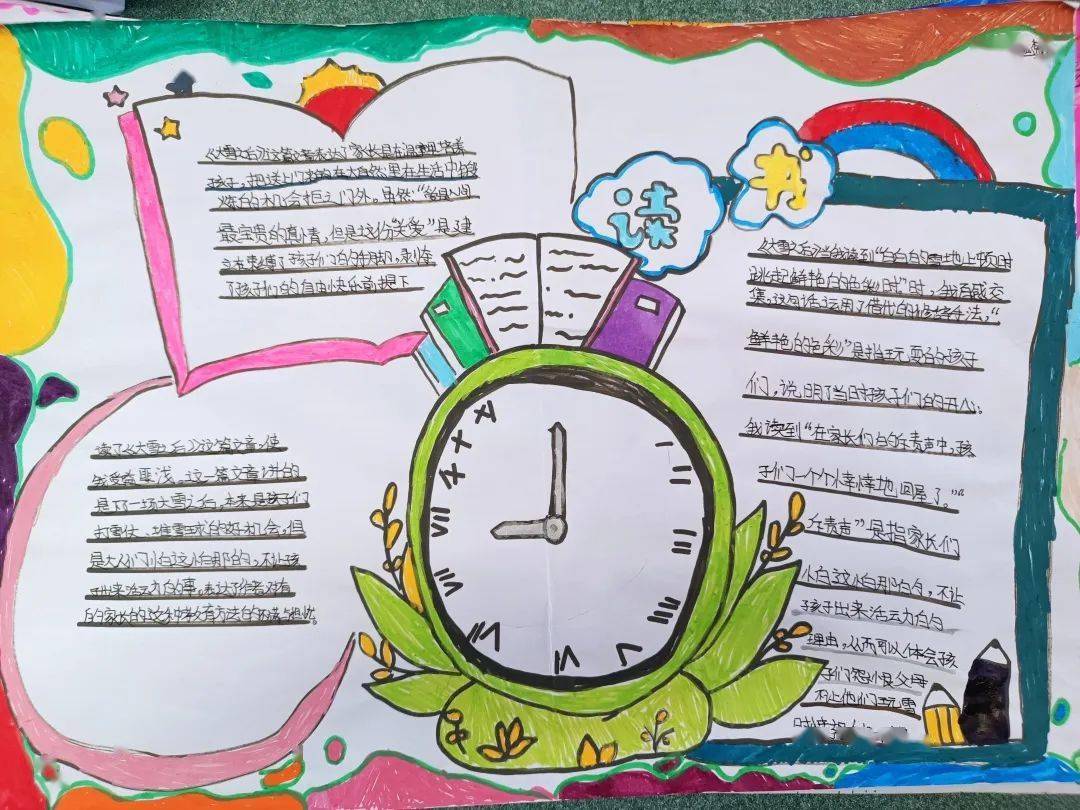 读书
《大雪之后》这篇文章表达了家长是在温室里培养
孩子，把送上门来的在大自然里在生活中锻
炼的机会拒之门外。虽然“爸是人间
最宝贵的真情，但是这份“关爱”是建
立在束缚了孩子们的手脚，剥夺
了孩子们的自由快乐前提下
读了《大雪之后》这篇文章，使
我受益匪浅。这一篇文章讲的
是下一场大雪之后，本来是孩子们
打雪仗、堆雪球的好机会，但
是大人们怕这怕那的，不让孩
子出来活动的事。表达了作者对有
的家长的这种教育方法的
《大雪之后》当我读到“白白的雪地上顿时
跳起鲜艳的色彩时”时，我百感交
集。这句话运用了借代的修辞手法，“
鲜艳的色彩”是指玩耍的孩子
们，说明了当时孩子们的开心。
我读到“在家长们的斥责声中，孩
子们一个个悻悻地回屋了。”“
斥责声”是指家长们
怕这怕那的，不让
孩子出来活动的
理由，从而可以体会孩
子们怨恨父母
不让他们玩雪
XI
X
VII
VI
V
II